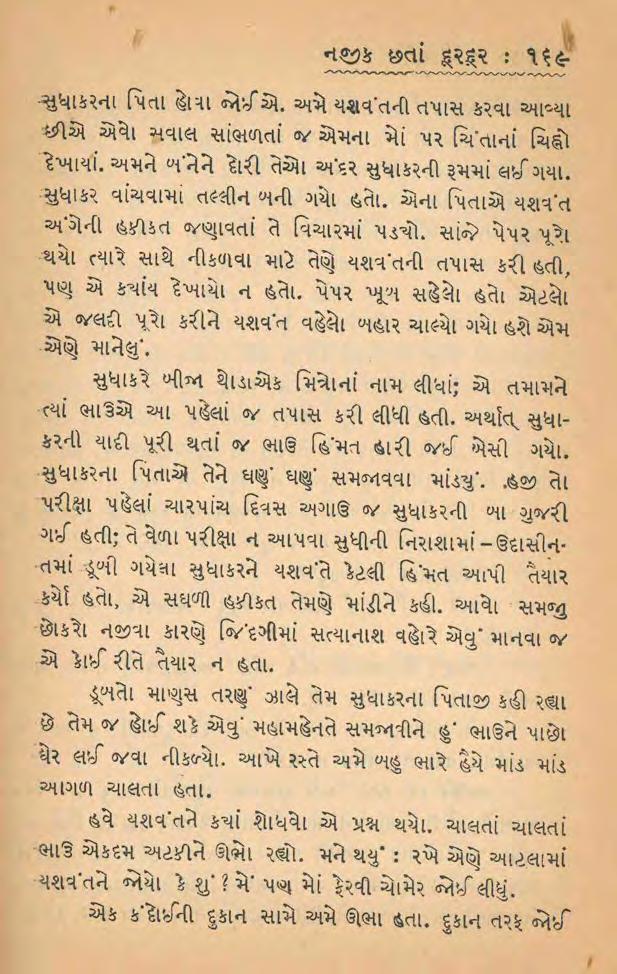 નજીક છતાં દૂરદૂર : ૧૬૯
સુધાકરના પિતા હોવા જોઈએ. અમે યશવંતની તપાસ કરવા આવ્યા
છીએ એવો સવાલ સાંભળતાં જ એમના મોં પર ચિંતાનાં ચિહ્નો
દેખાયાં. અમને બંનેને દોરી તેઓ અંદર સુધાકરની રૂમમાં લઈ ગયા.
સુધાકર વાંચવામાં તલ્લીન બની ગયો હતો. એના પિતાએ યશવંત
અંગેની હકીકત જણાવતાં તે વિચારમાં પડયો. સાંજે પેપર પૂરો
થયો ત્યારે સાથે નીકળવા માટે તેણે યશવંતની તપાસ કરી હતી,
પણ એ કયાંય દેખાયો ન હતો. પેપર ખૂબ સહેલો હતો એટલો
એ જલદી પૂરો કરીને યશવંત વહેલો બહાર ચાલ્યો ગયો હશે એમ
એણે માનેલું.
સુધાકરે બીજા થોડાએક મિત્રોનાં નામ લીધાં; એ તમામને
ત્યાં ભાઉએ આ પહેલાં જ તપાસ કરી લીધી હતી. અર્થાત્ સુધા-
કરની યાદી પૂરી થતાં જ ભાઉ હિંમત હારી જઈ બેસી ગયો.
સુધાકરના પિતાએ તેને ઘણું ઘણું સમજાવવા માંડયું. હજી તો
પરીક્ષા પહેલાં ચારપાંચ દિવસ અગાઉ જ સુધાકરની બા ગુજરી
ગઈ હતી; તે વેળા પરીક્ષા ન આપવા સુધીની નિરાશામાં – ઉદાસીન-
તમાં ડૂબી ગયેલા સુધાકરને યશવંતે કેટલી હિંમત આપી તૈયાર
કર્યો હતો, એ સઘળી હકીકત તેમણે માંડીને કહી. આવો સમજુ
છોકરો નજીવા કારણે જિંદગીમાં સત્યાનાશ વહોરે એવું માનવા જ
એ કોઈ રીતે તૈયાર ન હતા.
ડૂબતો માણુસ તરણું ઝાલે તેમ સુધાકરના પિતાજી કહી રહ્યા
છે તેમ જ હોઈ શકે એવું મહામહેનતે સમજાવીને હું ભાઉને પાછો
ઘેર લઈ જવા નીકળ્યો. આખે રસ્તે અમે બહુ ભારે હૈયે માંડ માંડ
આગળ ચાલતા હતા.
હવે યશવંતને કયાં શોધવો એ પ્રશ્ન થયો. ચાલતાં ચાલતાં
ભાઉ એકદમ અટકીને ઊભો રહ્યો. મને થયું : રખે એણે આટલામાં
યશવંતને જોયો કે શું ? મેં પણ મોં ફેરવી ચોમેર જોઈ લીધું.
એક કંદોઈની દુકાન સામે અમે ઊભા હતા. દુકાન તરફ જોઈ